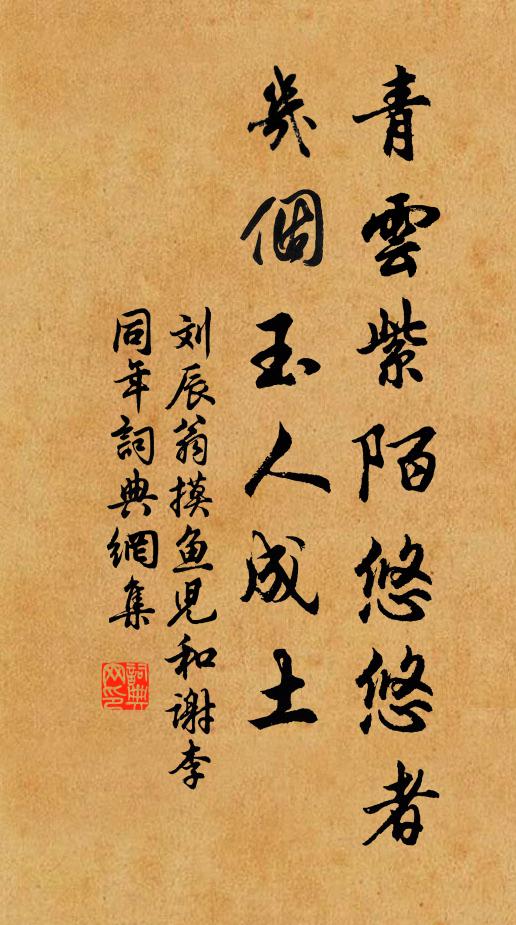 青雲紫陌悠悠者
幾個玉人成土
刘辰翁摸鱼児和谢李
同年詞典網集
詞典网印